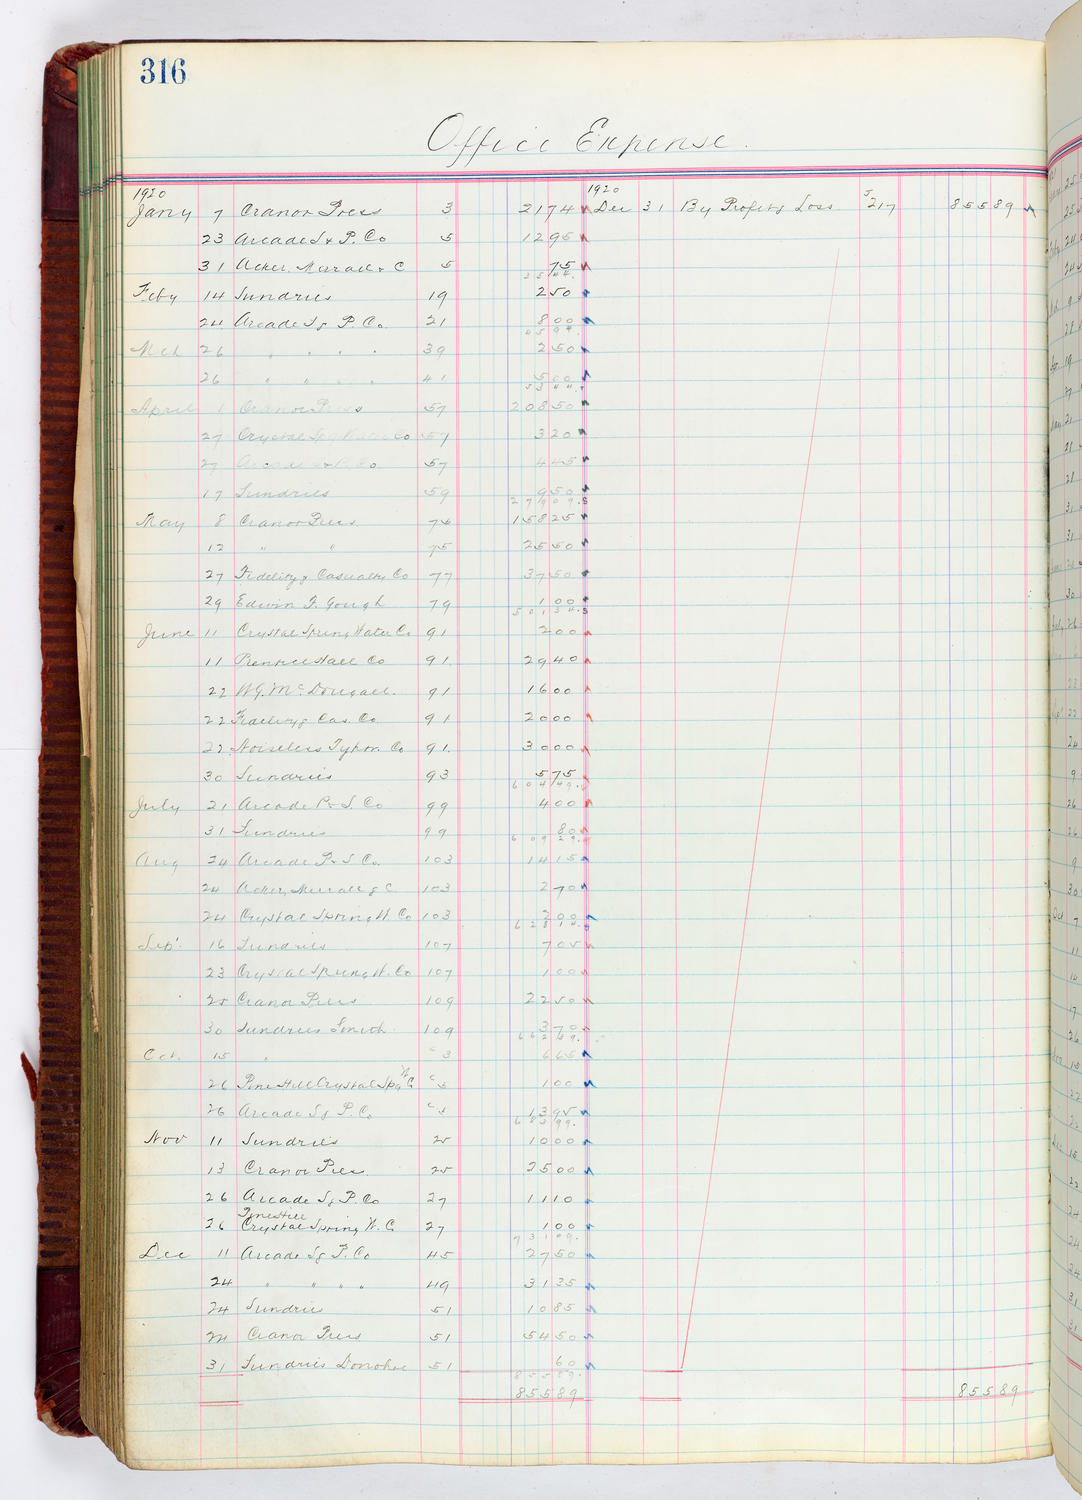 316
Office Expense.
1920 1920
Jany 7 Cranor Press 3 2174 Dec 31 By Profit & Loss J217 85589
23 Arcade S & P. Co 5 1295
31 Acker, Merrall & C 5 75
3544.
Feby 14 Sundries 19 250
24 Arcade S & P. Co. 21 800
4594.
Mch 26 " " " " 39 250
26 " " " " 41 500
5344.
April 1 Cranor Press 57 20850
27 Crystal Spg Water Co 57 320
27 Arcade S & P. Co 57 445
17 Sundries 59 950
27909.
May 8 Cranor Press 74 15825
12 " " 75 2550
27 Fidelity & Casualty Co 77 3750
29 Edwin F. Gough 79 100
50134.
June 11 Crystal Spring Water Co 91 200
11 Prentice Hall Co 91. 2940
22 W.G. McDougall. 91 1600
22 Fidelity & Cas. Co 91 2000
22 Noiseless Typwr. Co 91. 3000
30 Sundries 93 575
60449.
July 21 Arcade P & S. Co 99 400
31 Sundries 99 80
60929.
Aug 24 Arcade P & S Co. 103 1415
24 Acker, Merrall & C 103 270
24 Crystal Spring W. Co 103 200
62814.
Sep' 16 Sundries 107 705
23 Crystal Spring W. Co 107 100
25 Cranor Press 109 2250
30 Sundries Smith 109 370
66239.
Oct. 15 " 3 665
26 Pine Hill Crystal Spg W. C 100
26 Arcade S & P. Co 1395
68399.
Nov 11 Sundries 25 1000
13 Cranor Press 25 2500
26 Arcade S & P. Co 27 1110
Pine Hill
26 Crystal Spring W. C 27 100
73109.
Dec 11 Arcade S & P. Co 45 2750
24 " " " " 49 3135
24 Sundries 51 1085
24 Cranor Press 51 5450
31 Sundries Donohoe 51 60
85589.
85589 85589